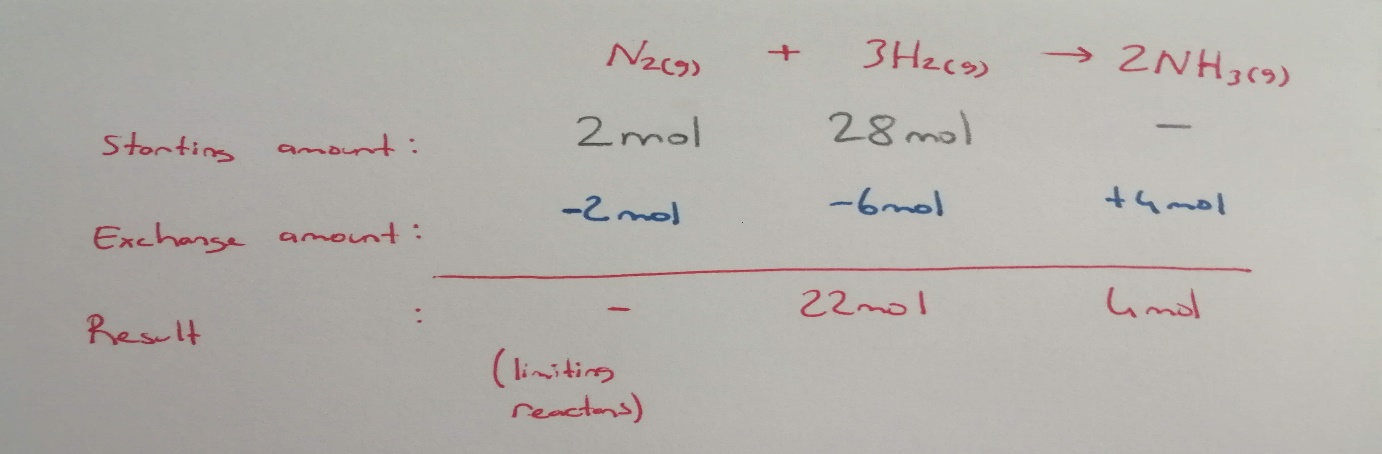 N2(g) + 3H2(g) → 2NH3(g)
Starting amount: 2mol 28mol -
Exchange amount: -2mol -6mol +4mol
Result : - 22mol 4mol
(limiting
reactans)